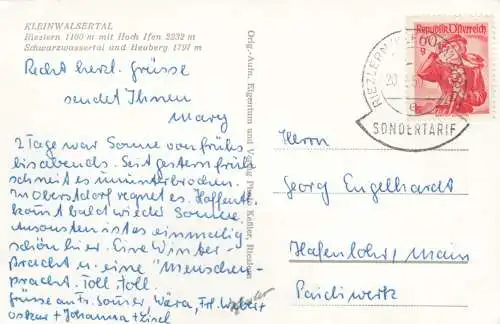 KLEINWALSERTAL
Riezlern 1100 m mit Hoch Ifen 2232 m
Schwarzwassertal und Heuberg 1797 m
Recht herzl. Grüsse
sendet Ihnen
Mary
2 Tage war Sonne von früh
bis abends. Seit gestern früh
schneit es ununterbrochen.
In Oberstdorf regnet es. Hoffentl.
kommt bald wieder Sonne.
Ansonsten ist es einmalig
schön hier. Eine Winter-
pracht u. eine "Menschen-
pracht. Toll, toll.
Grüsse an Fr.
Oskar + Johanna +
Orig.-Aufn. Eigentum und Verlag Photo Keßler, Riezlern
Republik Österreich
60
g
RIEZLERN
20
e
SONDERTARIF
Herrn
Georg Engelhardt
Hafenlohr/Main